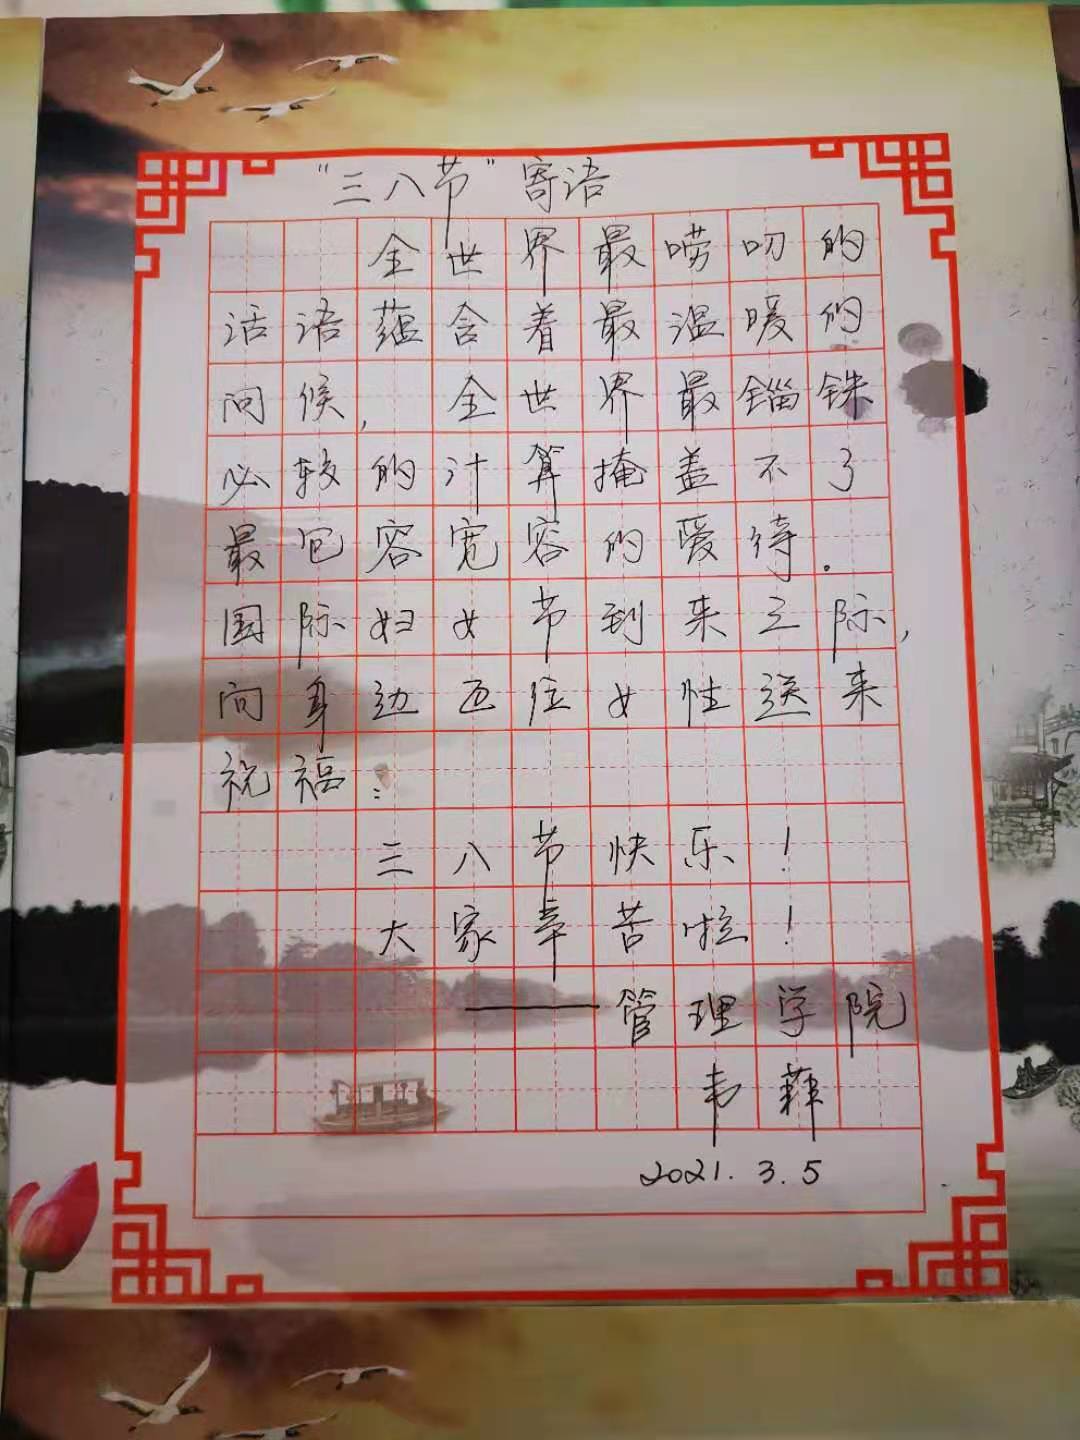 “三八节”寄语
全世界最唠叨的
话语蕴含着最温暖的
问候，全世界最锱铢
必较的计算掩盖不了
最包容宽容的爱待。
国际妇女节到来之际，
向身边五位女性送来
祝福：
三八节快乐！
大家辛苦啦！
——管理学院
韦菲
2021.3.5